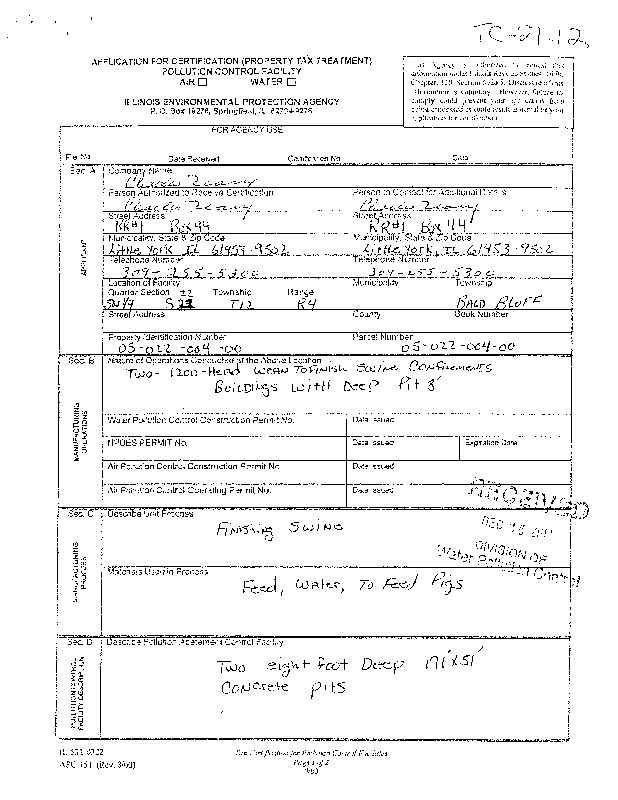 APPLICATION FOR CERTIFICATION (PROPERTY TAX TREATMENT)
POLLUTION CONTROL FACILITY
AIR ☐ WATER ☐
ILLINOIS ENVIRONMENTAL PROTECTION AGENCY
P. O. Box 19276, Springfield, IL 62794-9276
FOR AGENCY USE
File No. Date Received Certification No. Date
Sec. A Company Name
Person Authorized to Receive Certification Person to Contact for Additional Details
Street Address Street Address
RR#1 Box 44 RR#1 Box 44
Municipality, State & Zip Code Municipality, State & Zip Code
Little York IL 61453-9502 Little York, IL 61453-9502
Telephone Number Telephone Number
309-255-5300 309-255-5300
Location of Facility Municipality Township
Quarter Section Township Range
T12 R4 Bald Bluff
Street Address County Book Number
Property Identification Number Parcel Number
05-022-004-00 05-022-004-00
APPLICANT
Sec. B Nature of Operations Conducted at the Above Location
Two- 1200-Head Wean To Finish Swine Confinements
Buildings with Deep Pit 8'
MANUFACTURING OPERATIONS
Water Pollution Control Construction Permit No. Date Issued
NPDES PERMIT No. Date Issued Expiration Date
Air Pollution Control Construction Permit No. Date Issued
Air Pollution Control Operating Permit No. Date Issued
Sec. C Describe Unit Process
Finishing Swine
DIVISION OF
Water Pollution Control
MANUFACTURING PROCESS
Materials Used in Process
Feed, Water, To Feed Pigs
Sec. D Describe Pollution Abatement Control Facility
Two eight foot Deep 171'x51'
Concrete pits
POLLUTION CONTROL FACILITY DESCRIPTION
Page 1 of 2